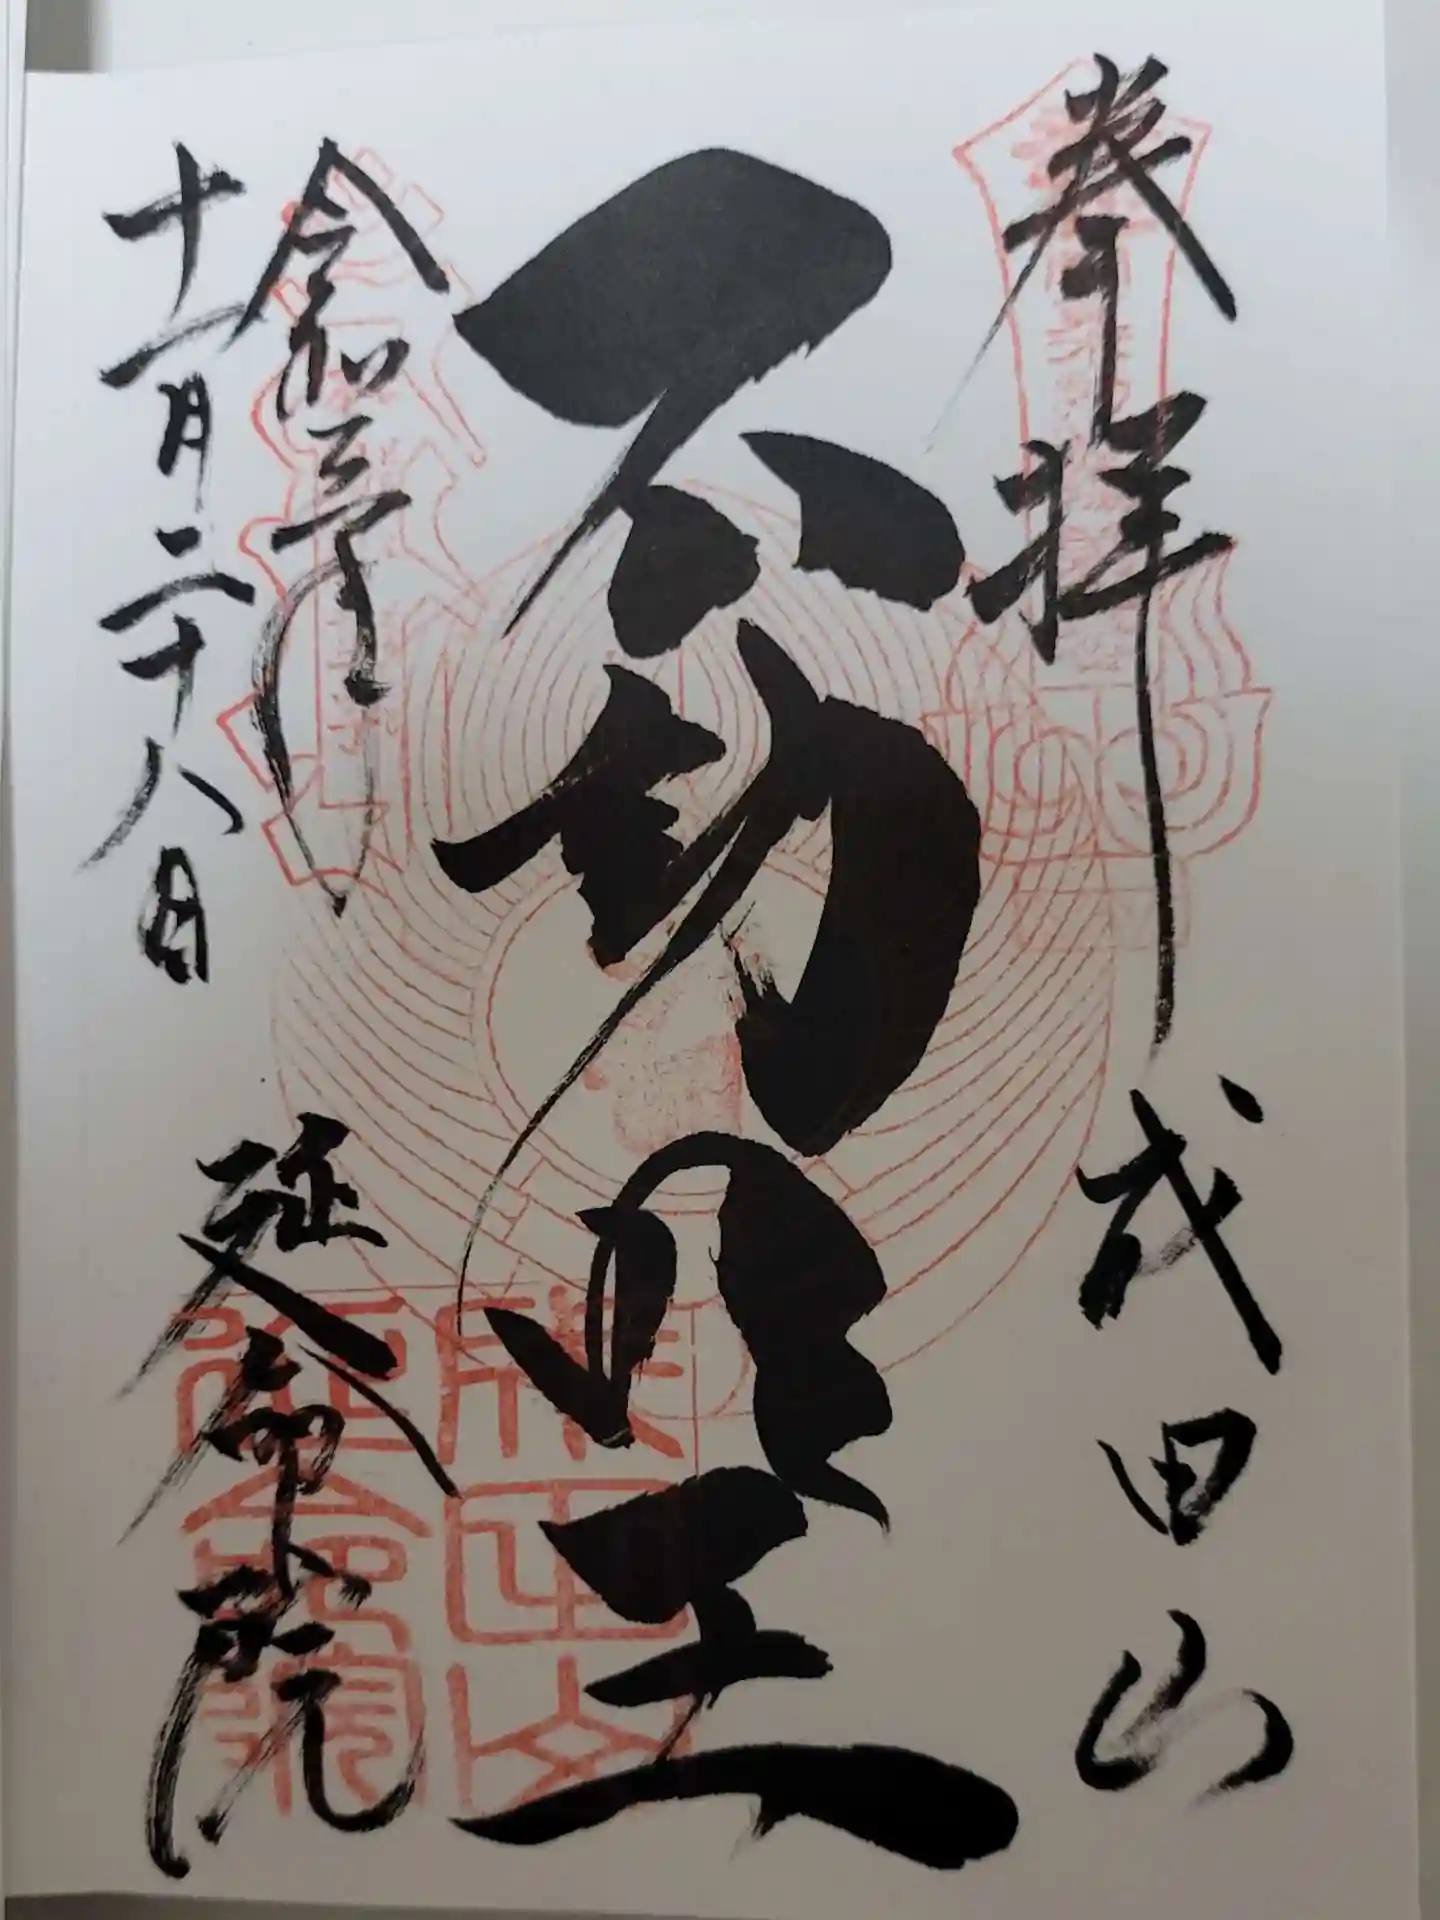 奉拝 成田山
不動明王
令和三年
十一月二十八日
延命院
成田山
延命院